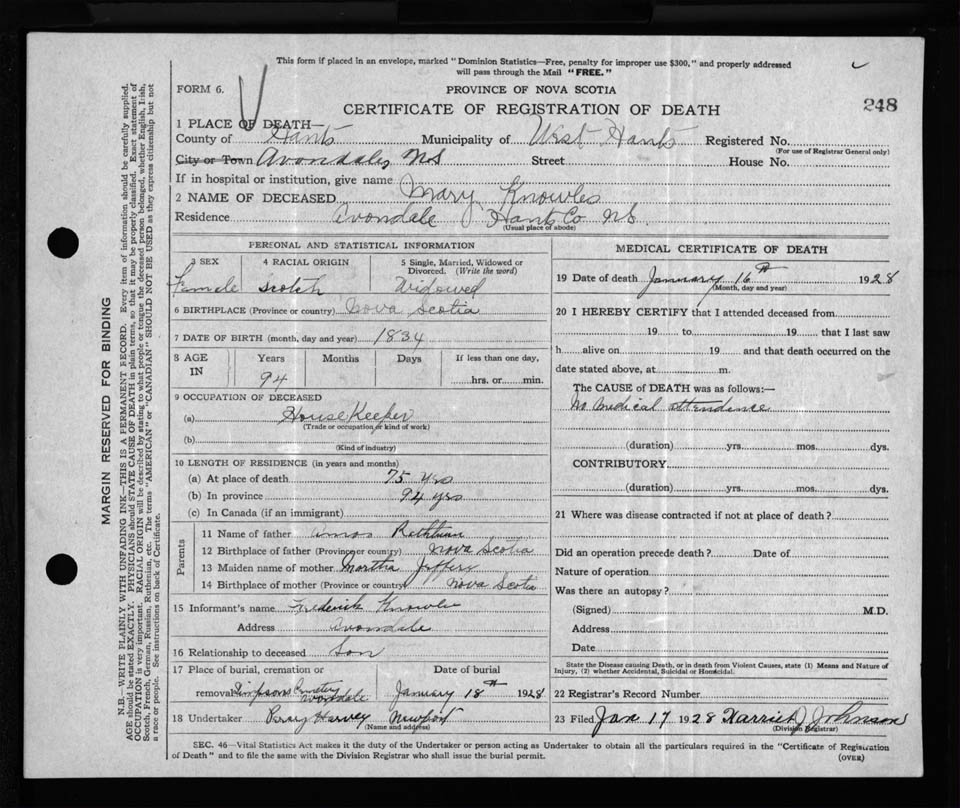 This form if placed in an envelope, marked "Dominion Statistics—Free, penalty for improper use $300," and properly addressed
will pass through the Mail "FREE."
FORM 6.
PROVINCE OF NOVA SCOTIA
CERTIFICATE OF REGISTRATION OF DEATH
248
1 PLACE OF DEATH—
County of Hants Municipality of West Hants Registered No.
(For use of Registrar General only)
City or Town Avondale, NS Street House No.
If in hospital or institution, give name
2 NAME OF DECEASED Mary Knowles
Residence Avondale Hants Co. NS.
(Usual place of abode)
PERSONAL AND STATISTICAL INFORMATION
3 SEX 4 RACIAL ORIGIN 5 Single, Married, Widowed or
Divorced. (Write the word)
Female Scotch Widowed
6 BIRTHPLACE (Province or country) Nova Scotia
7 DATE OF BIRTH (month, day and year) 1834
8 AGE IN Years Months Days If less than one day,
94 hrs. or min.
9 OCCUPATION OF DECEASED
(a) House Keeper
(Trade or occupation or kind of work)
(b)
(Kind of industry)
10 LENGTH OF RESIDENCE (in years and months)
(a) At place of death 75 yrs
(b) In province 94 yrs
(c) In Canada (if an immigrant)
Parents
11 Name of father Amos
12 Birthplace of father (Province or country) Nova Scotia
13 Maiden name of mother Martha
14 Birthplace of mother (Province or country) Nova Scotia
15 Informant's name Frederick Knowles
Address Avondale
16 Relationship to deceased Son
17 Place of burial, cremation or Date of burial
removal Simpsons Cemetery Avondale January 18th 1928
18 Undertaker Harvey Newport
(Name and address)
MEDICAL CERTIFICATE OF DEATH
19 Date of death January 16th 1928
(Month, day and year)
20 I HEREBY CERTIFY that I attended deceased from
19 to 19 that I last saw
h alive on 19 and that death occurred on the
date stated above, at m.
The CAUSE of DEATH was as follows:—
No medical attendence
(duration) yrs. mos. dys.
CONTRIBUTORY
(duration) yrs. mos. dys.
21 Where was disease contracted if not at place of death?
Did an operation precede death? Date of
Nature of operation
Was there an autopsy?
(Signed) M.D.
Address
Date
State the Disease causing Death, or in death from Violent Causes, state (1) Means and Nature of
Injury, (2) whether Accidental, Suicidal or Homicidal.
22 Registrar's Record Number
23 Filed Jan 17 1928 Johnson
(Division Registrar)
SEC. 46—Vital Statistics Act makes it the duty of the Undertaker or person acting as Undertaker to obtain all the particulars required in the "Certificate of Registration
of Death" and to file the same with the Division Registrar who shall issue the burial permit.
(OVER)
MARGIN RESERVED FOR BINDING
N.B.—WRITE PLAINLY WITH UNFADING INK—THIS IS A PERMANENT RECORD. Every item of information should be carefully supplied.
AGE should be stated EXACTLY. PHYSICIANS should STATE CAUSE OF DEATH in plain terms, so that it may be properly classified. Exact statement of
OCCUPATION is very important. RACIAL ORIGIN will be described by stating to what people or tongue the deceased person belonged, whether English, Irish,
Scotch, French, German, Russian, Ruthenian, etc. The terms "AMERICAN" or "CANADIAN" SHOULD NOT BE USED as they express citizenship but not
a race or people. See instructions on back of Certificate.